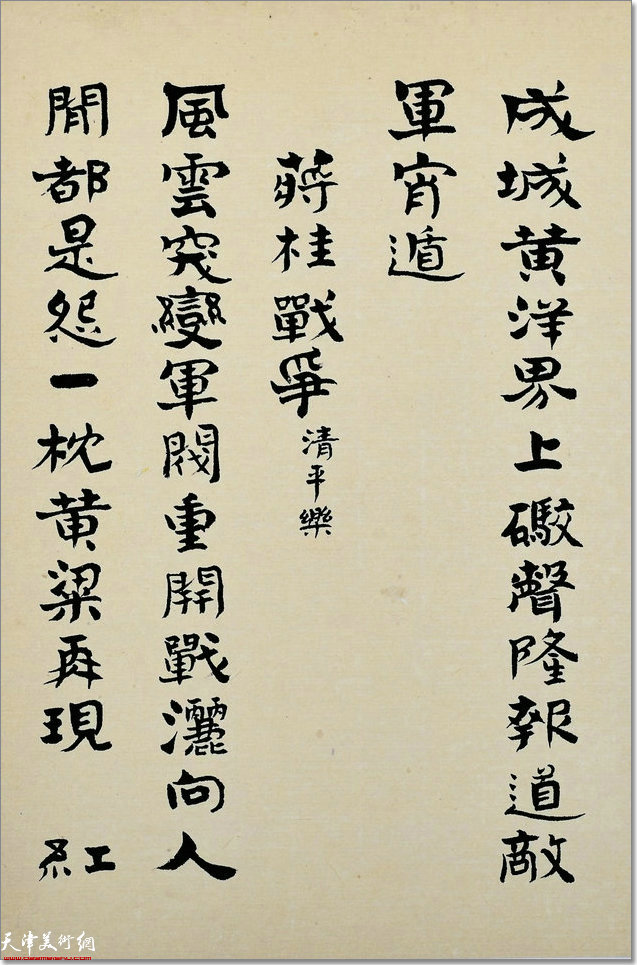 成城黄洋界上礮聲隆報道敵
軍宵遁
蔣桂戰爭 清平樂
風雲突變軍閥重開戰灑向人
間都是怨一枕黄粱再現 紅
天津美術網